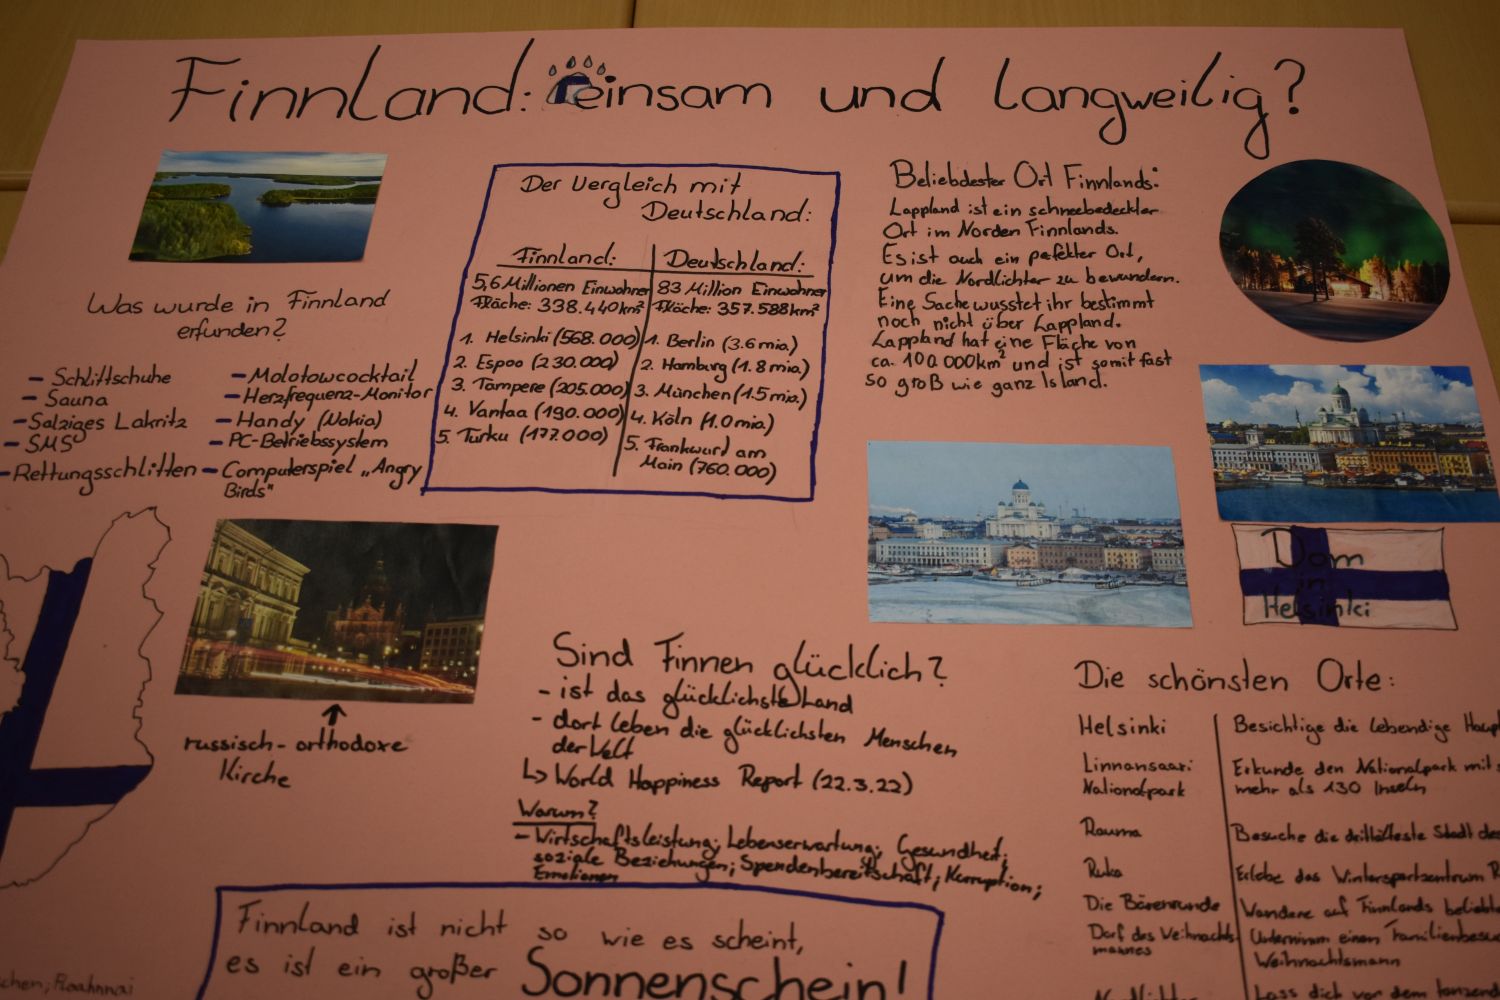 Finnland: einsam und langweilig?
Was wurde in Finnland
erfunden?
- Schlittschuhe
- Sauna
- Salziges Lakritz
- SMS
- Rettungsschlitten
- Molotowcocktail
- Herzfrequenz-Monitor
- Handy (Nokia)
- PC-Betriebssystem
- Computerspiel „Angry
Birds"
Der Vergleich mit
Deutschland:
Finnland:
5,6 Millionen Einwohner
Fläche: 338.440km²
1. Helsinki (568.000)
2. Espoo (230.000)
3. Tampere (205.000)
4. Vantaa (190.000)
5. Turku (177.000)
Deutschland:
83 Million Einwohner
Fläche: 357.588km²
1. Berlin (3.6 mio.)
2. Hamburg (1.8 mio.)
3. München (1.5 mio.)
4. Köln (1.0 mio.)
5. Frankwurd am
Main (760.000)
Beliebdester Ort Finnlands:
Lappland ist ein schneebedeckter
Ort im Norden Finnlands.
Es ist auch ein pefekter Ort,
um die Nordlichter zu bewundern.
Eine Sache wusstet ihr bestimmt
noch nicht über Lappland.
Lappland hat eine Fläche von
ca. 100.000km² und ist somit fast
so groß wie ganz Island.
Dom
in
Helsinki
russisch-orthodoxe
Kirche
Sind Finnen glücklich?
- ist das glücklichste Land
- dort leben die glücklichsten Menschen
der Welt
↳ World Happiness Report (22.3.22)
Warum?
- Wirtschaftsleistung; Lebenserwartung; Gesundheit;
soziale Beziehungen; Spendenbereitschaft; Korruption;
Emotionen
Finnland ist nicht so wie es scheint,
es ist ein großer Sonnenschein!
Die schönsten Orte:
Helsinki Besichtige die lebendige Haup
Linnansaari Erkunde den Nationalpark mit
Nationalpark mehr als 130 Inseln
Rauma Besuche die drittälteste Stadt
Ruka Erlebe das Wintersportzentrum R
Die Bärenrunde Wandere auf Finnlands beliebte
Dorf des Weihnachts- Unternimm einen Familienbesu
mannes Weihnachtsmann
Nordlichter Lass dich von dem tanzend